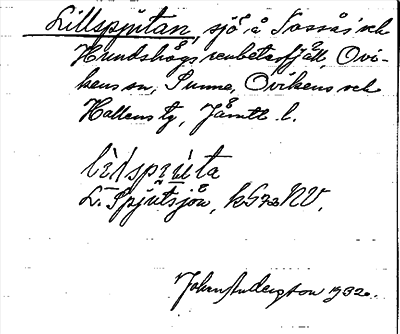 Lillspjutan, sjö å Sossås och
Hundshögs renbetesfjäll, Ovi-
kens sn, Sunne, Ovikens och
Hallens tg, Jämtl. l.
L. Spjutsjön, k 573 NV.
John Anderson 1932.